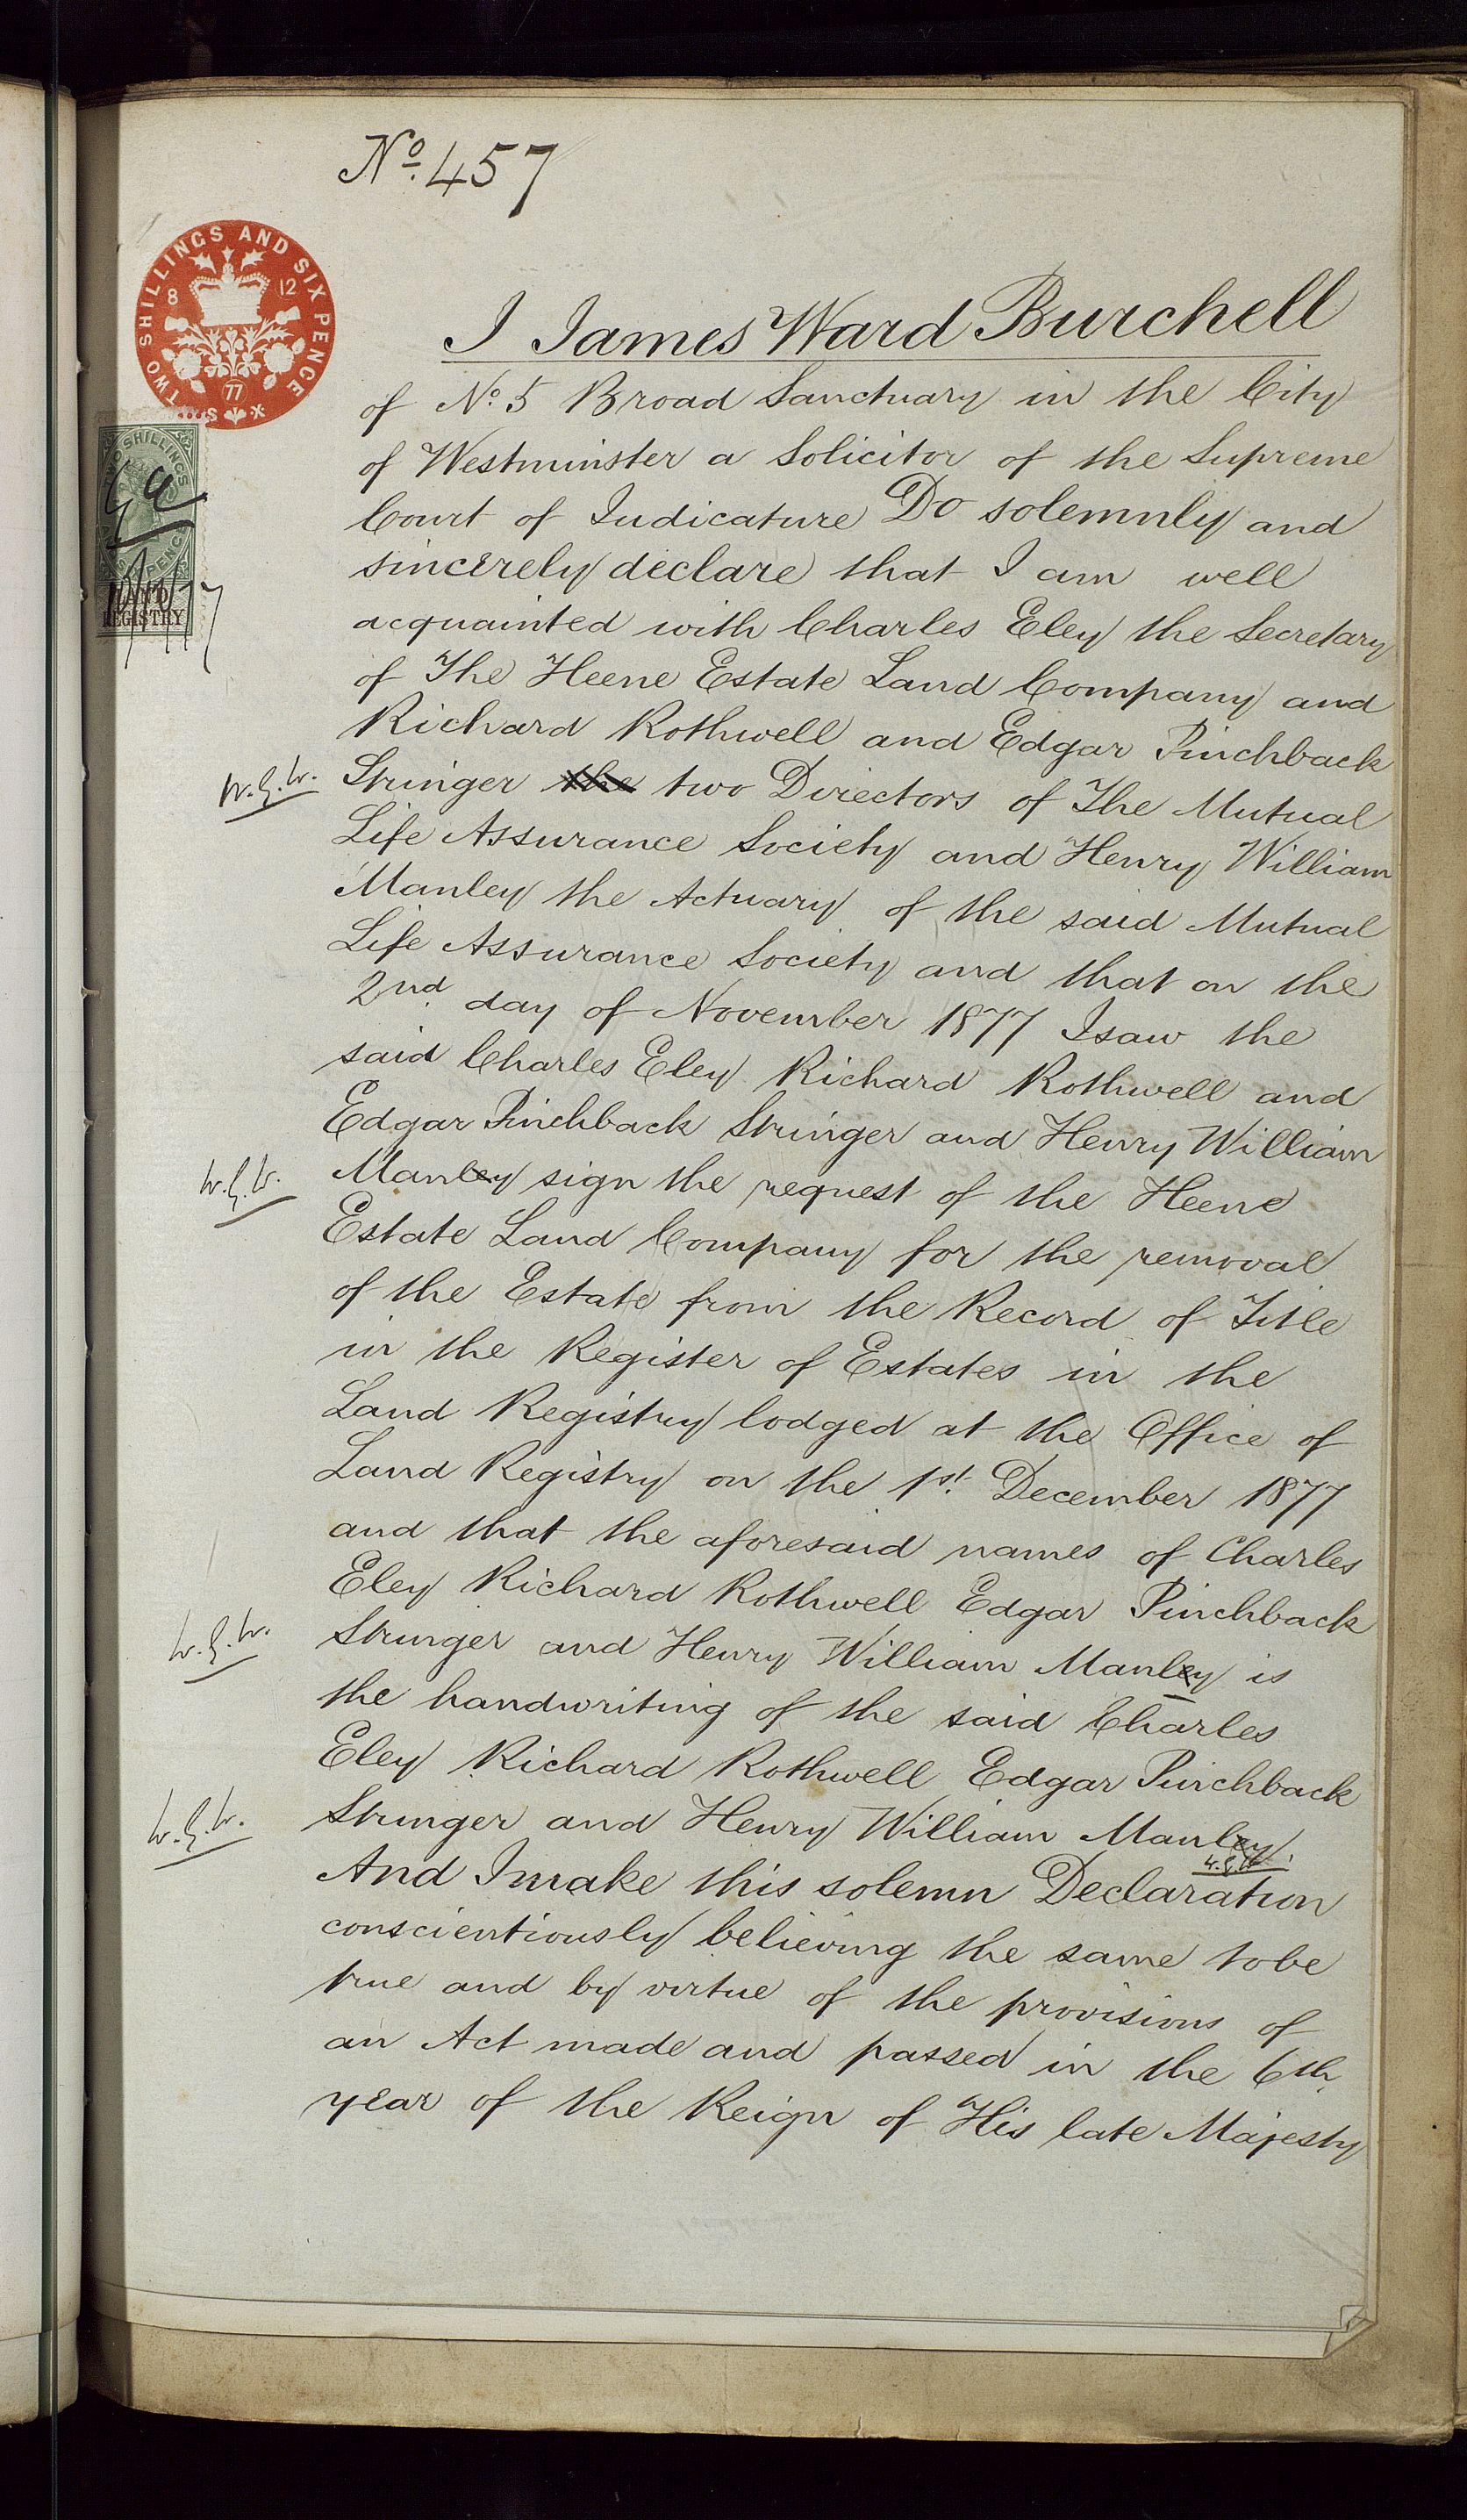 No. 457
TWO SHILLINGS AND SIX PENCE
8 12
77
S
TWO SHILLINGS
SIX PENCE
LAND
REGISTRY
I James Ward Burchell
of No. 5 Broad Sanctuary in the City
of Westminster a Solicitor of the Supreme
Court of Judicature Do solemnly and
sincerely declare that I am well
acquainted with Charles Eley the Secretary
of The Heene Estate Land Company and
Richard Rothwell and Edgar Pinchback
W.G.W. Stringer the two Directors of The Mutual
Life Assurance Society and Henry William
Manley the Actuary of the said Mutual
Life Assurance Society and that on the
2nd day of November 1877 I saw the
said Charles Eley Richard Rothwell and
Edgar Pinchback Stringer and Henry William
W.G.W. Manley sign the request of the Heene
Estate Land Company for the removal
of the Estate from the Record of Title
in the Register of Estates in the
Land Registry lodged at the Office of
Land Registry on the 1st December 1877
and that the aforesaid names of Charles
Eley Richard Rothwell Edgar Pinchback
W.G.W. Stringer and Henry William Manley is
the handwriting of the said Charles
Eley Richard Rothwell Edgar Pinchback
W.G.W. Stringer and Henry William Manley.
W.G.W.
And I make this solemn Declaration
conscientiously believing the same to be
true and by virtue of the provisions of
an Act made and passed in the 6th
year of the Reign of His late Majesty